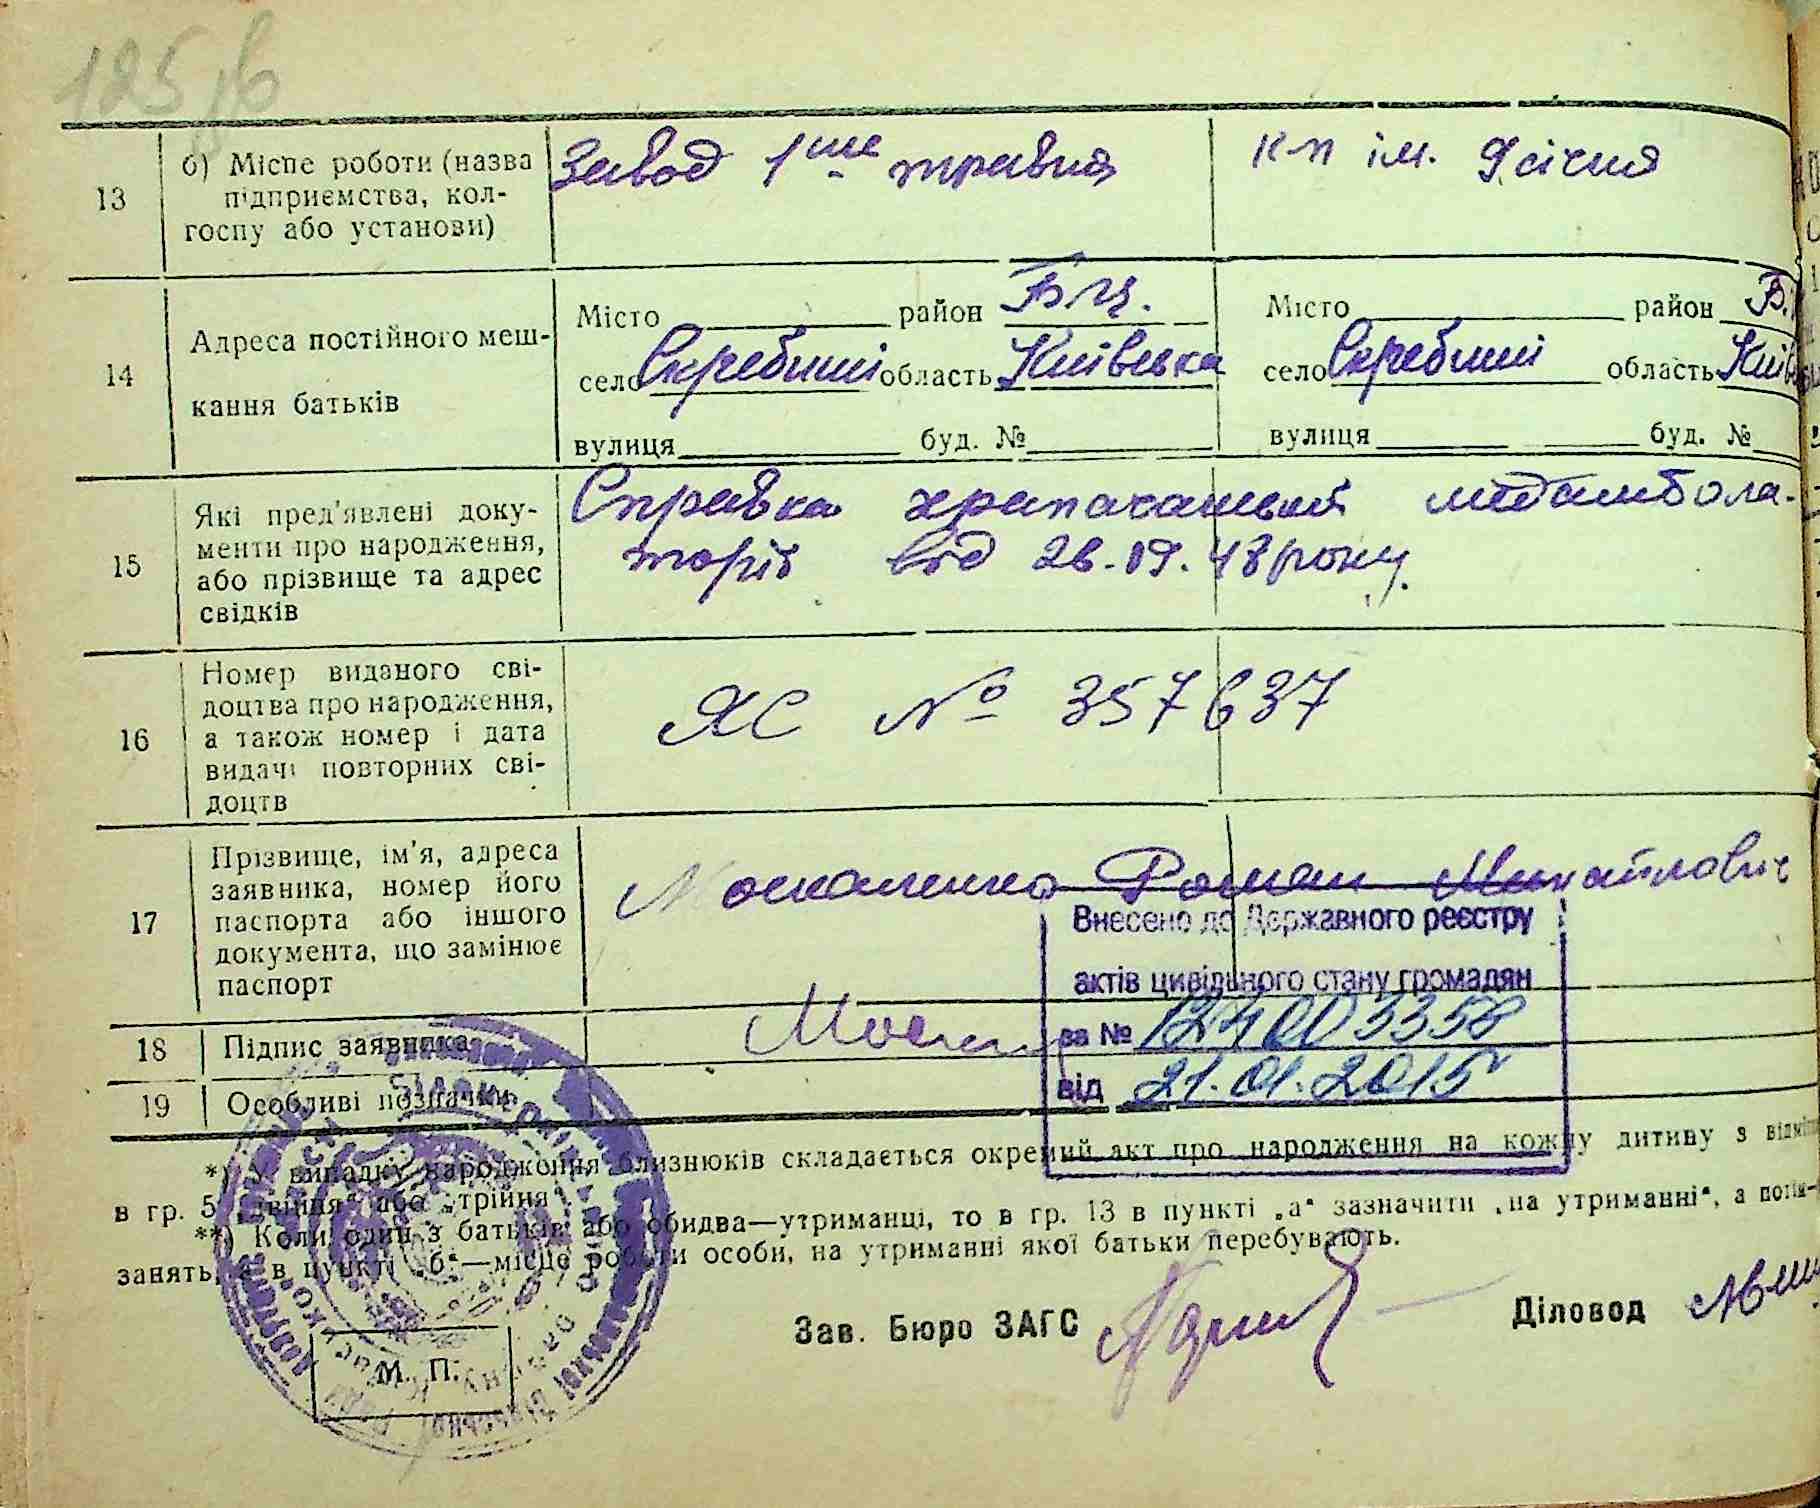 125 зв
13
б) Місце роботи (назва підприємства, колгоспу або установи)
Завод 1ше травня
к-п ім. 9 січня
14
Адреса постійного мешкання батьків
Місто район Б Ц.
село Скребиші область Київська
вулиця буд. №
Місто район Б.
село Скребиші область Київ
вулиця буд. №
15
Які пред'явлені документи про народження, або прізвище та адрес свідків
Справка храпачанської медамбола-
торії від 26.09.48 року.
16
Номер виданого свідоцтва про народження, а також номер і дата видачі повторних свідоцтв
ЯС № 357637
17
Прізвище, ім'я, адреса заявника, номер його паспорта або іншого документа, що замінює паспорт
Москаленко Роман Михайлович
Внесено до Державного реєстру
актів цивільного стану громадян
за № 124003358
від 21.01.2015
18
Підпис заявника
Моск
19
Особливі позначки
*) У випадку народження близнюків складається окремий акт про народження на кожну дитину з відміт
в гр. 5 „двійня“ або „трійня“
**) Коли один з батьків або обидва—утриманці, то в гр. 13 в пункті „а“ зазначити „на утриманні“, а потім-
занять, а в пункті „б“—місце роботи особи, на утриманні якої батьки перебувають.
Зав. Бюро ЗАГС
Діловод
М. П.